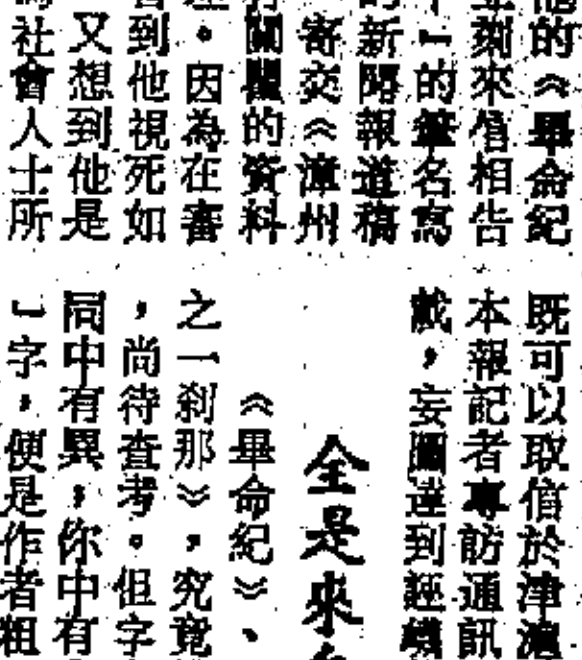 的《畢命紀
刻來信相告
」的筆名寫
新聞報道稿
寄交《漳州
有關的資料
。因為在審
到他視死如
又想到他是
社會人士所
既可以取信於津滬
本報記者專訪通訊
戴,妄圖達到誣衊
全是來自
《畢命紀》、
之一剎那》,究竟
,尚待查考。但字
同中有異,你中有
」字,便是作者粗